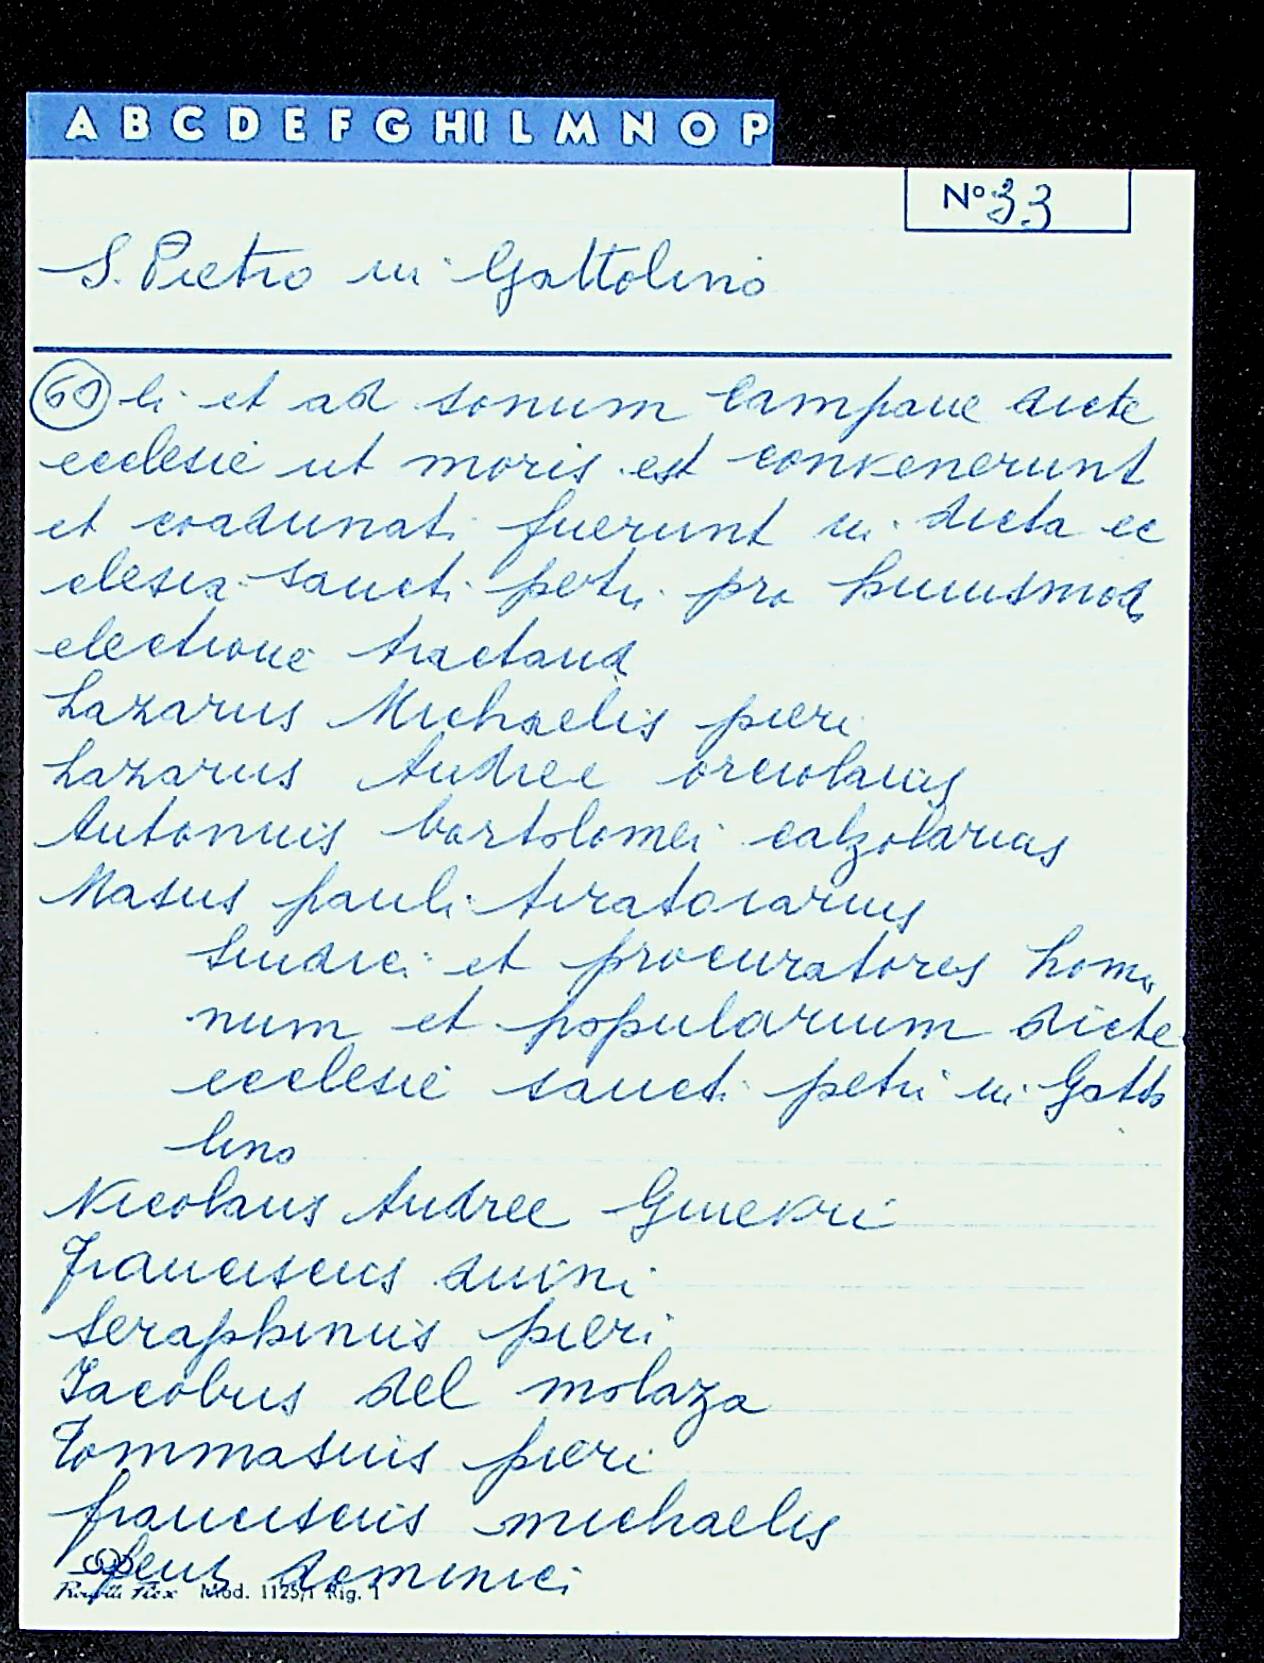 A B C D E F G H I L M N O P
N° 33
S. Pietro in Gattolino
60 li et ad sonum campane dicte
ecclesie ut moris est convenerunt
et coadunati fuerunt in dicta ec
clesia sancti petri pro huiusmodi
electione tractand
Lazarus Michaelis pieri
Lazarus Andree orciolarius
Antonius bartolomei calzolarius
Masus pauli tiratoiarius
Sindici et procuratores homi
num et popularium dicte
ecclesie sancti petri in Gatto
lino
Nicolaus Andree Ginevri
Franciscus duini
Seraphinus pieri
Iacobus del molaza
Tommasius pieri
franciscus michaelis
dominici
Mod. 1125/1 Rig. 1